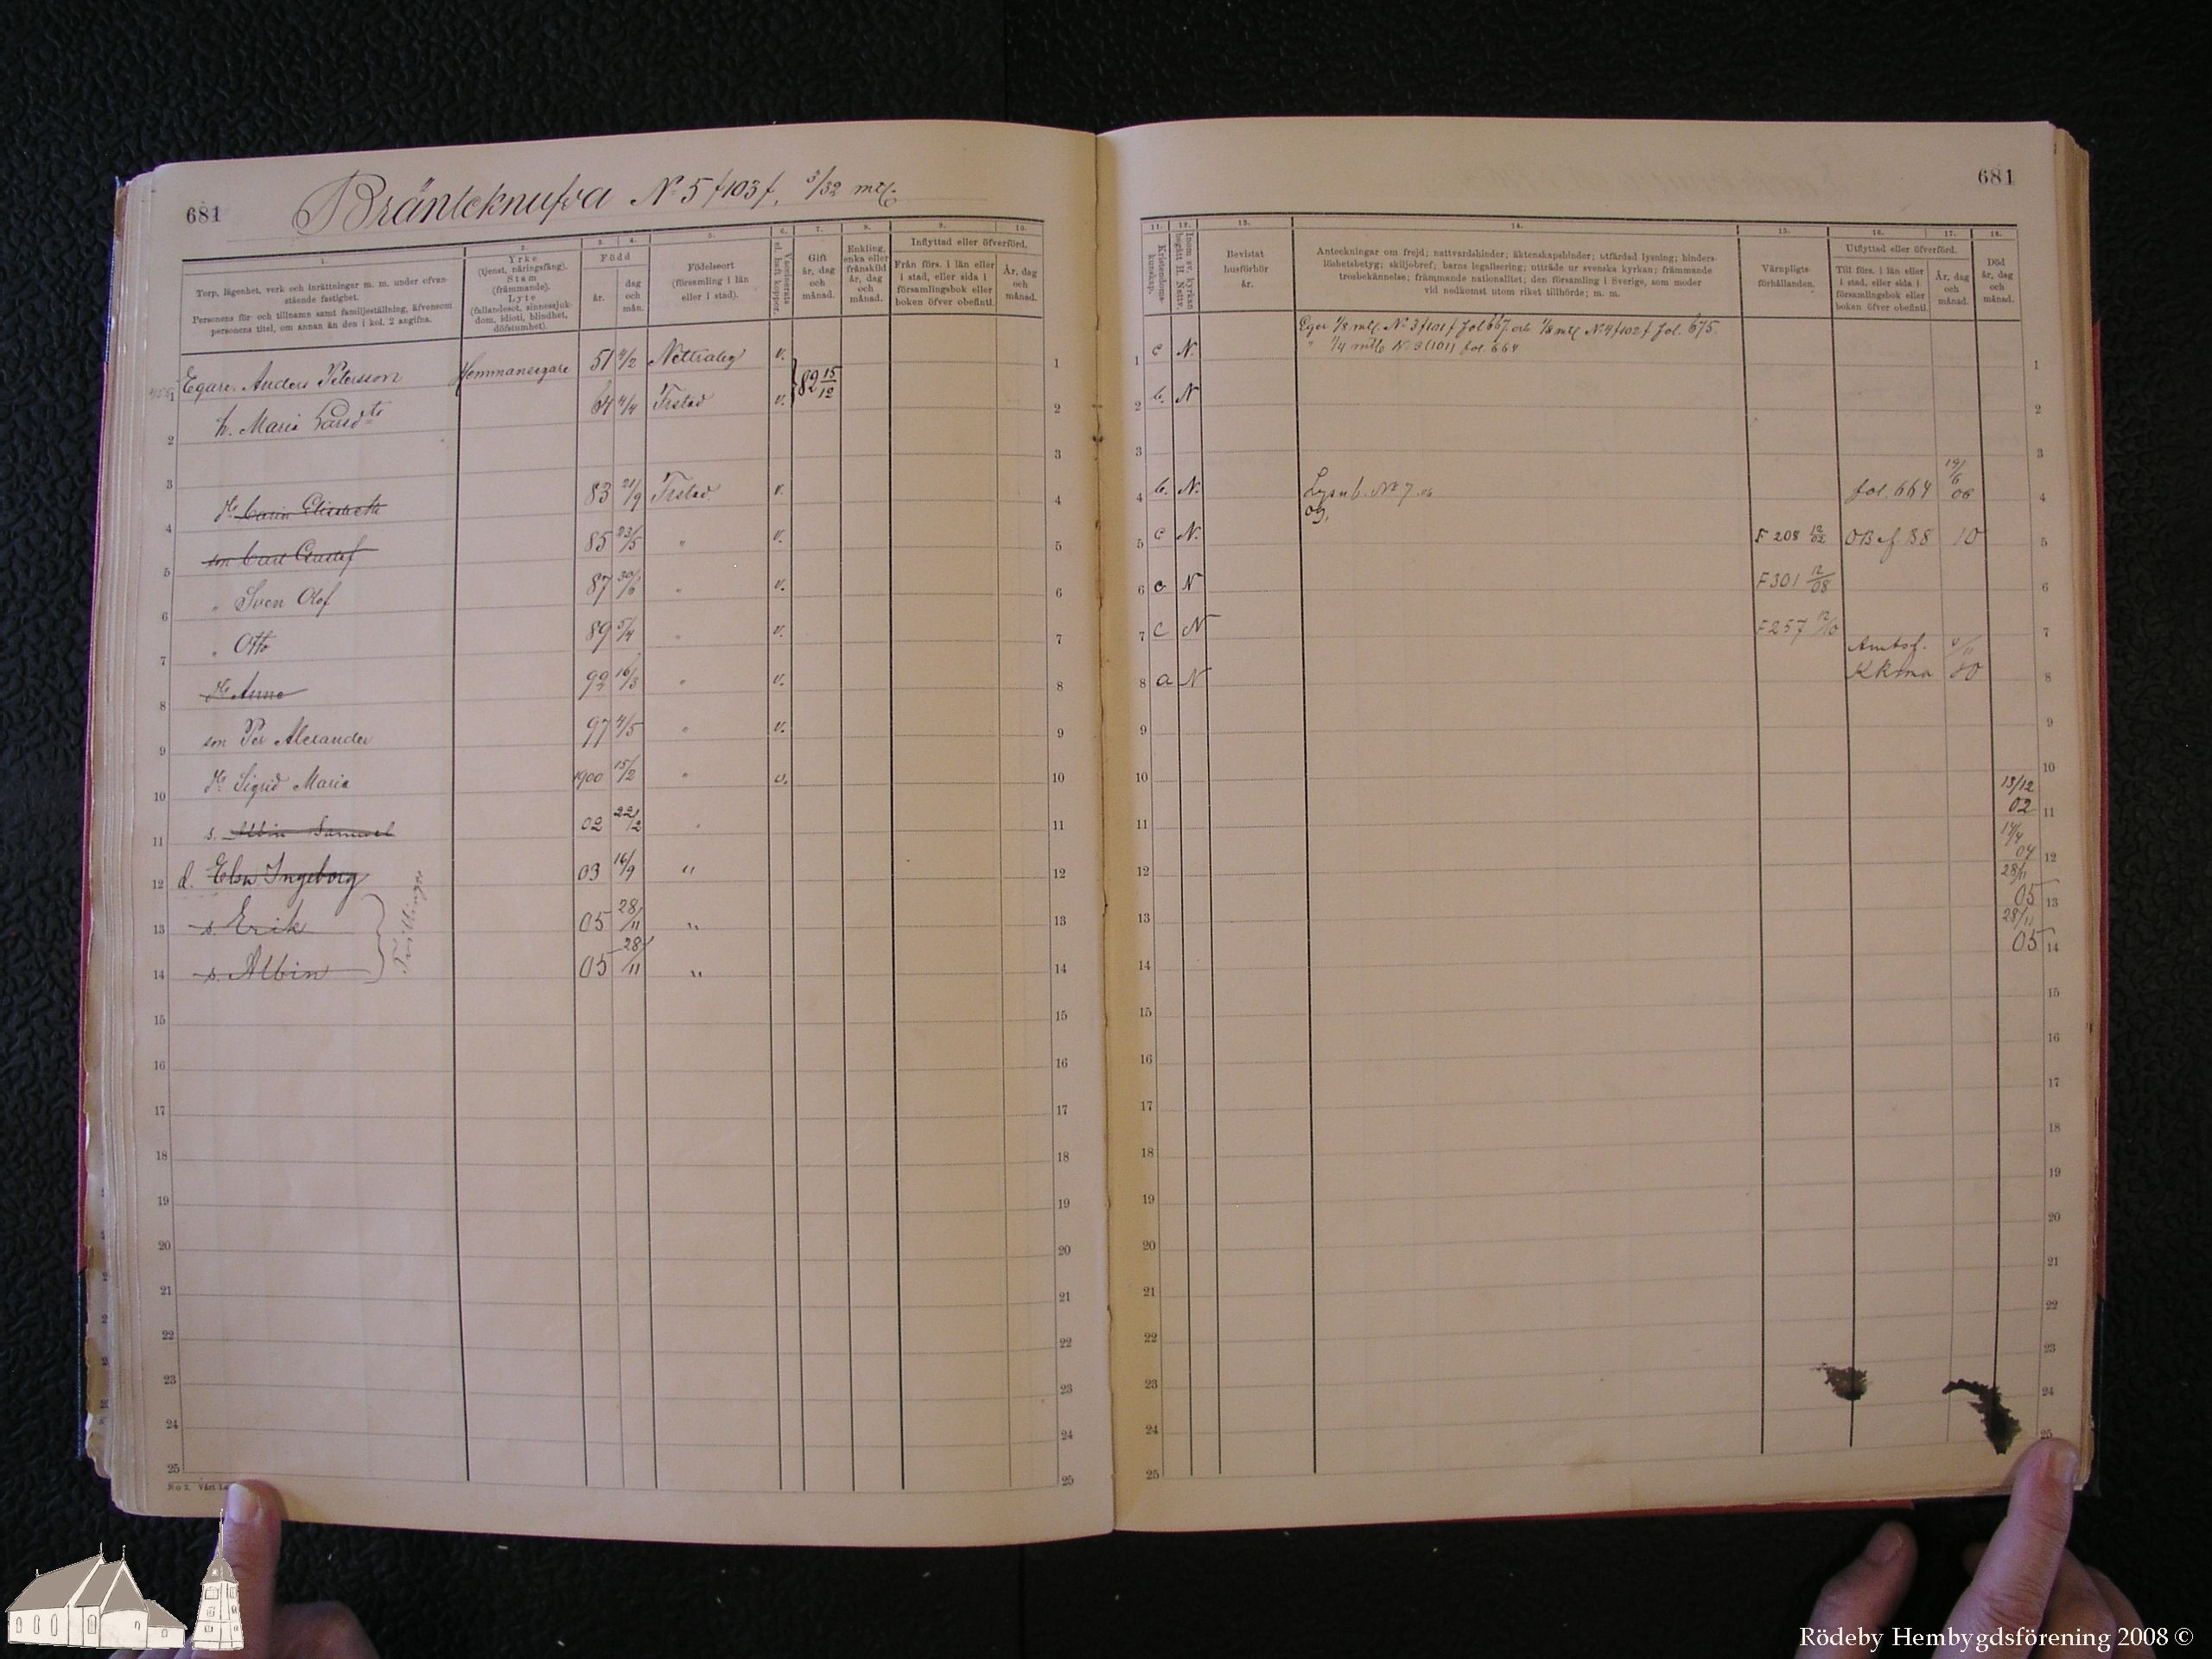 681
Bränteknufva N:o 5 f103f, 3/32 mtl.
1. 2. 3. 4. 5. 6. 7. 8. 9. 10.
Torp, lägenhet, verk och inrättningar m. m. under ofvanstående fastighet.
Personens för- och tillnamn samt familjeställning, äfvensom personens titel, om annan än den i kol. 2 angifna.
Yrke (tjenst, näringsfång). Stam (främmande). Lyte (fallandesot, sinnessjukdom, idioti, blindhet, döfstumhet).
Född
år.
dag och mån.
Födelseort (församling i län eller i stad).
Vaccinerats el. haft koppor.
Gift år, dag och månad.
Enkling, enka eller frånskild år, dag och månad.
Inflyttad eller öfverförd.
Från förs. i län eller i stad, eller sida i församlingsbok eller boken öfver obefintl.
År, dag och månad.
1 Egare. Anders Petersson Hemmansegare 51 4/2 Nettraby v. 82 15/12 1
2 h. Maria Larsdtr 64 4/4 Frstad v. 2
3 3
4 Dr Carin Elisabeth 83 21/9 Frstad v. 4
5 son Carl Gustaf 85 23/5 " v. 5
6 " Sven Olof 87 30/6 " v. 6
7 " Otto 89 5/4 " v. 7
8 Dr Anna 92 16/3 " v. 8
9 son Per Alexander 97 4/5 " v. 9
10 Dr Sigrid Maria 1900 15/2 " v. 10
11 s. Albin Samuel 02 22/2 " 11
12 d. Elsa Ingeborg 03 16/9 " 12
13 s. Erik 05 28/11 " 13
14 s. Albin 05 28/11 " 14
Tvillingar
15 15
16 16
17 17
18 18
19 19
20 20
21 21
22 22
23 23
24 24
25 25
681
11. 12. 13. 14. 15. 16. 17. 18.
Kristendomskunskap.
Inom sv. kyrkan begått H. Nattv.
Bevistat husförhör år.
Anteckningar om frejd; nattvardshinder; äktenskapshinder; utfärdad lysning; hinderslöshetsbetyg; skiljobref; barns legalisering; utträde ur svenska kyrkan; främmande trosbekännelse; främmande nationalitet; den församling i Sverige, som moder vid nedkomst utom riket tillhörde; m. m.
Värnpligtsförhållanden.
Utflyttad eller öfverförd.
Till förs. i län eller i stad, eller sida i församlingsbok eller boken öfver obefintl.
År, dag och månad.
Död år, dag och månad.
Eger 1/8 mtl. No 3 f101f fol 667. och 1/8 mtl. No 4 f102f fol. 675.
1 c N. " 1/4 mtl No 3 (101) fol. 664 1
2 b. N 2
3 3
4 b. N. Lysn b. No 7. 06 fol. 664 19/6 06 4
5 c N. F 208 12/02 OB ef 38 10 5
6 c N F 301 12/08 6
7 c N F 257 12/10 7
8 a N Amtsf. KKrona 8
9 9
10 10
11 13/12 02 11
12 04 12
13 28/11 05 13
14 28/11 05 14
15 15
16 16
17 17
18 18
19 19
20 20
21 21
22 22
23 23
24 24
25 25
Rödeby Hembygdsförening 2008 ©